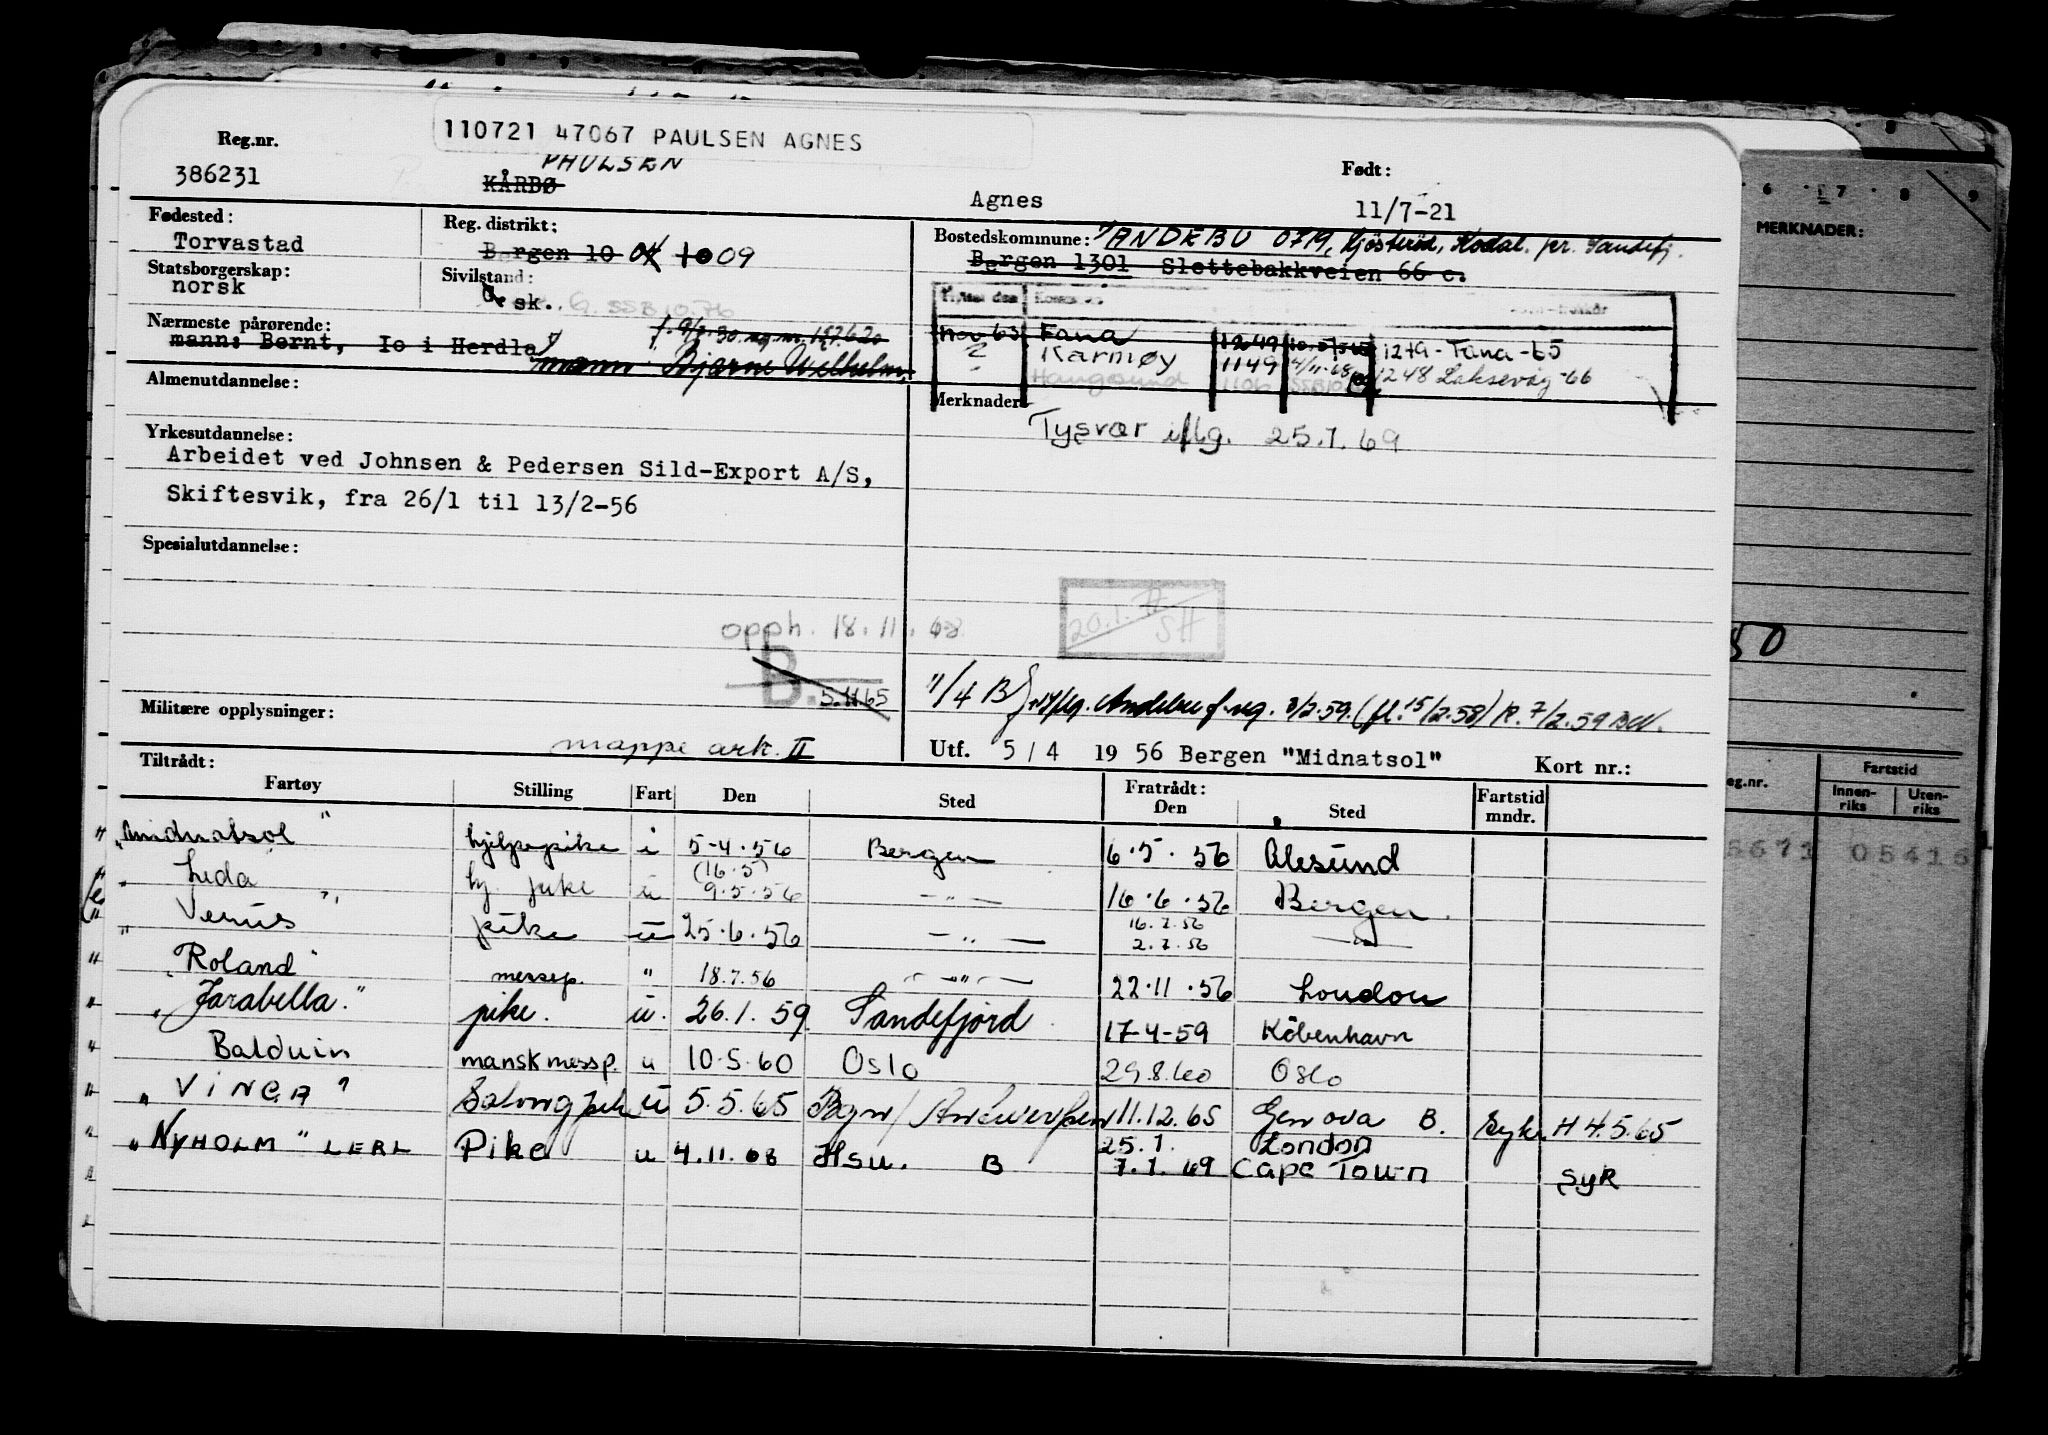 110721 47067 PAULSEN AGNES
Reg.nr.
386231
PAULSEN
KÅRBØ
Agnes
Født:
11/7-21
Fødested:
Torvastad
Reg. distrikt:
Bergen 10 04 10 09
Bostedskommune: ANDEBU 0719, Kjösteröd, Kodal. pr. Sandefj.
Bergen 1301 Slettebakkveien 66 c.
Statsborgerskap:
norsk
Sivilstand:
sk. G. SSB 10.76
Nærmeste pårørende:
mann: Bernt, Io i Herdla
mann Bjarne Wilhelm,
nov 65 Fana 1249 1249-Fana-65
Karmøy 1149 4/11-68 1248 Laksevåg-66
Haugesund 1106
Almenutdannelse:
Merknader
Tysvær iflg. 25.1.69
Yrkesutdannelse:
Arbeidet ved Johnsen & Pedersen Sild-Export A/S,
Skiftesvik, fra 26/1 til 13/2-56
Spesialutdannelse:
20.1. SH
opph. 18.11.68
B.
5.11.65
11/4 B Andebu f.reg. 3/2.59. (fl. 15/2.58) R. 7/2.59 BW.
Militære opplysninger:
mappe ark. II
Utf. 5/4 1956 Bergen "Midnatsol"
Kort nr.:
Tiltrådt:
Fartøy Stilling Fart Den Sted Fratrådt: Den Sted Fartstid mndr.
"Midnatsol" hjelpepike i 5-4.56 Bergen 6.5.56 Ålesund
(16.5)
" Leda " hj. pike u 9.5.56 -"- 16.6.56 Bergen
16.7.56
" Venus pike u 25.6.56 -"- 2.7.56 -"-
"Roland" messep. " 18.7.56 -"- 22.11.56 London
"Jarabella." pike. u. 26.1.59 Sandefjord 17-4-59 København
Balduin manskmessp. u 10.5.60 Oslo 29.8.60 Oslo
"VINGA" Salongpike u 5.5.65 Bgn/Antwerpen 11.12.65 Genova B. Syk H 4.5.65
25.1. London
"NYHOLM" LERL Pike u 4.11.68 Hsu. B 7.1.69 Cape Town SyR
6 7 8 9
MERKNADER:
50
eg.nr.
Fartstid
Innen-
riks
Uten-
riks
5671 05416